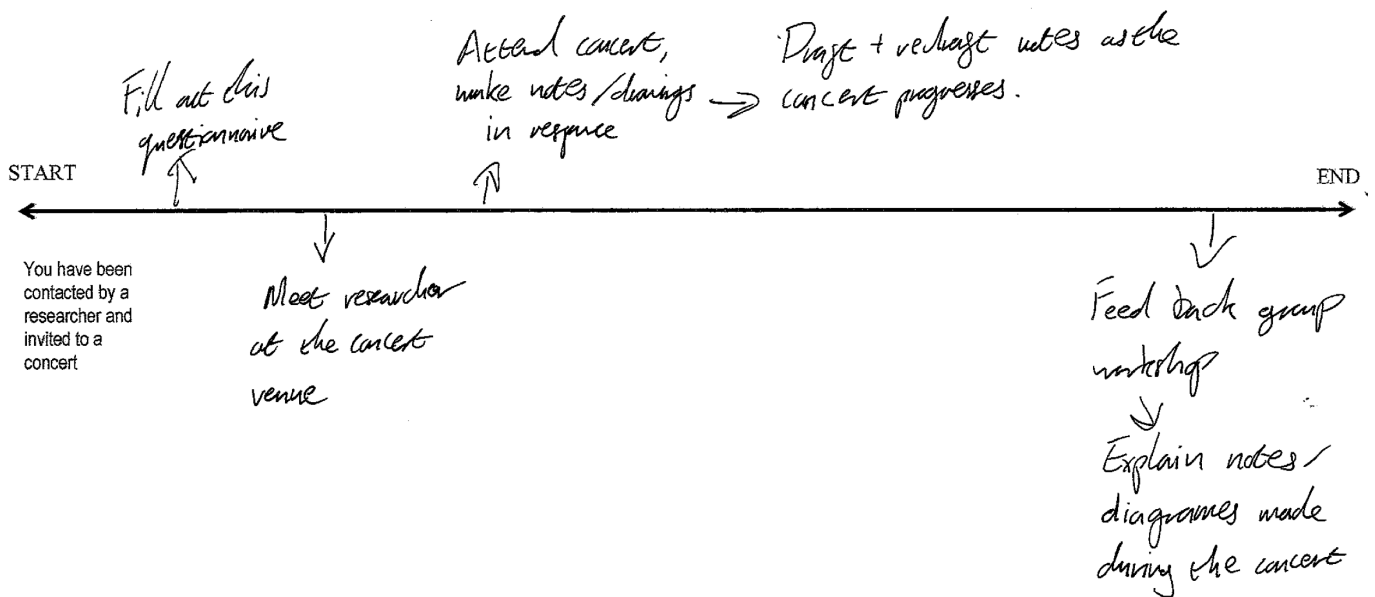 Fill out this
questionnaire
Attend concert,
make notes/drawings
in responce
Draft + redraft notes as the
concert progresses.
START
END
You have been
contacted by a
researcher and
invited to a
concert
Meet researcher
at the concert
venue
Feed back group
workshop
Explain notes/
diagrames made
during the concert